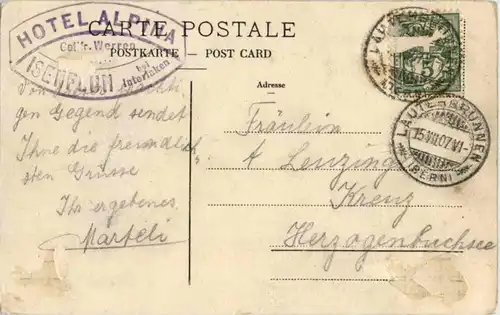 CARTE POSTALE
POSTKARTE — POST CARD
HOTEL ALPINA
Gottfr. Werren
ISENFLUH bei Interlaken
LAUTERBRUNNEN
5
LAUTERBRUNNEN
15.VII.07.VI-
(BERN)
Adresse
Von
gen Gegend sendet
Ihne die freundlich
sten Grüsse
Ihr ergebenes
Marteli
Fräulein
Lenzinger
Kreuz
Herzogenbuchsee